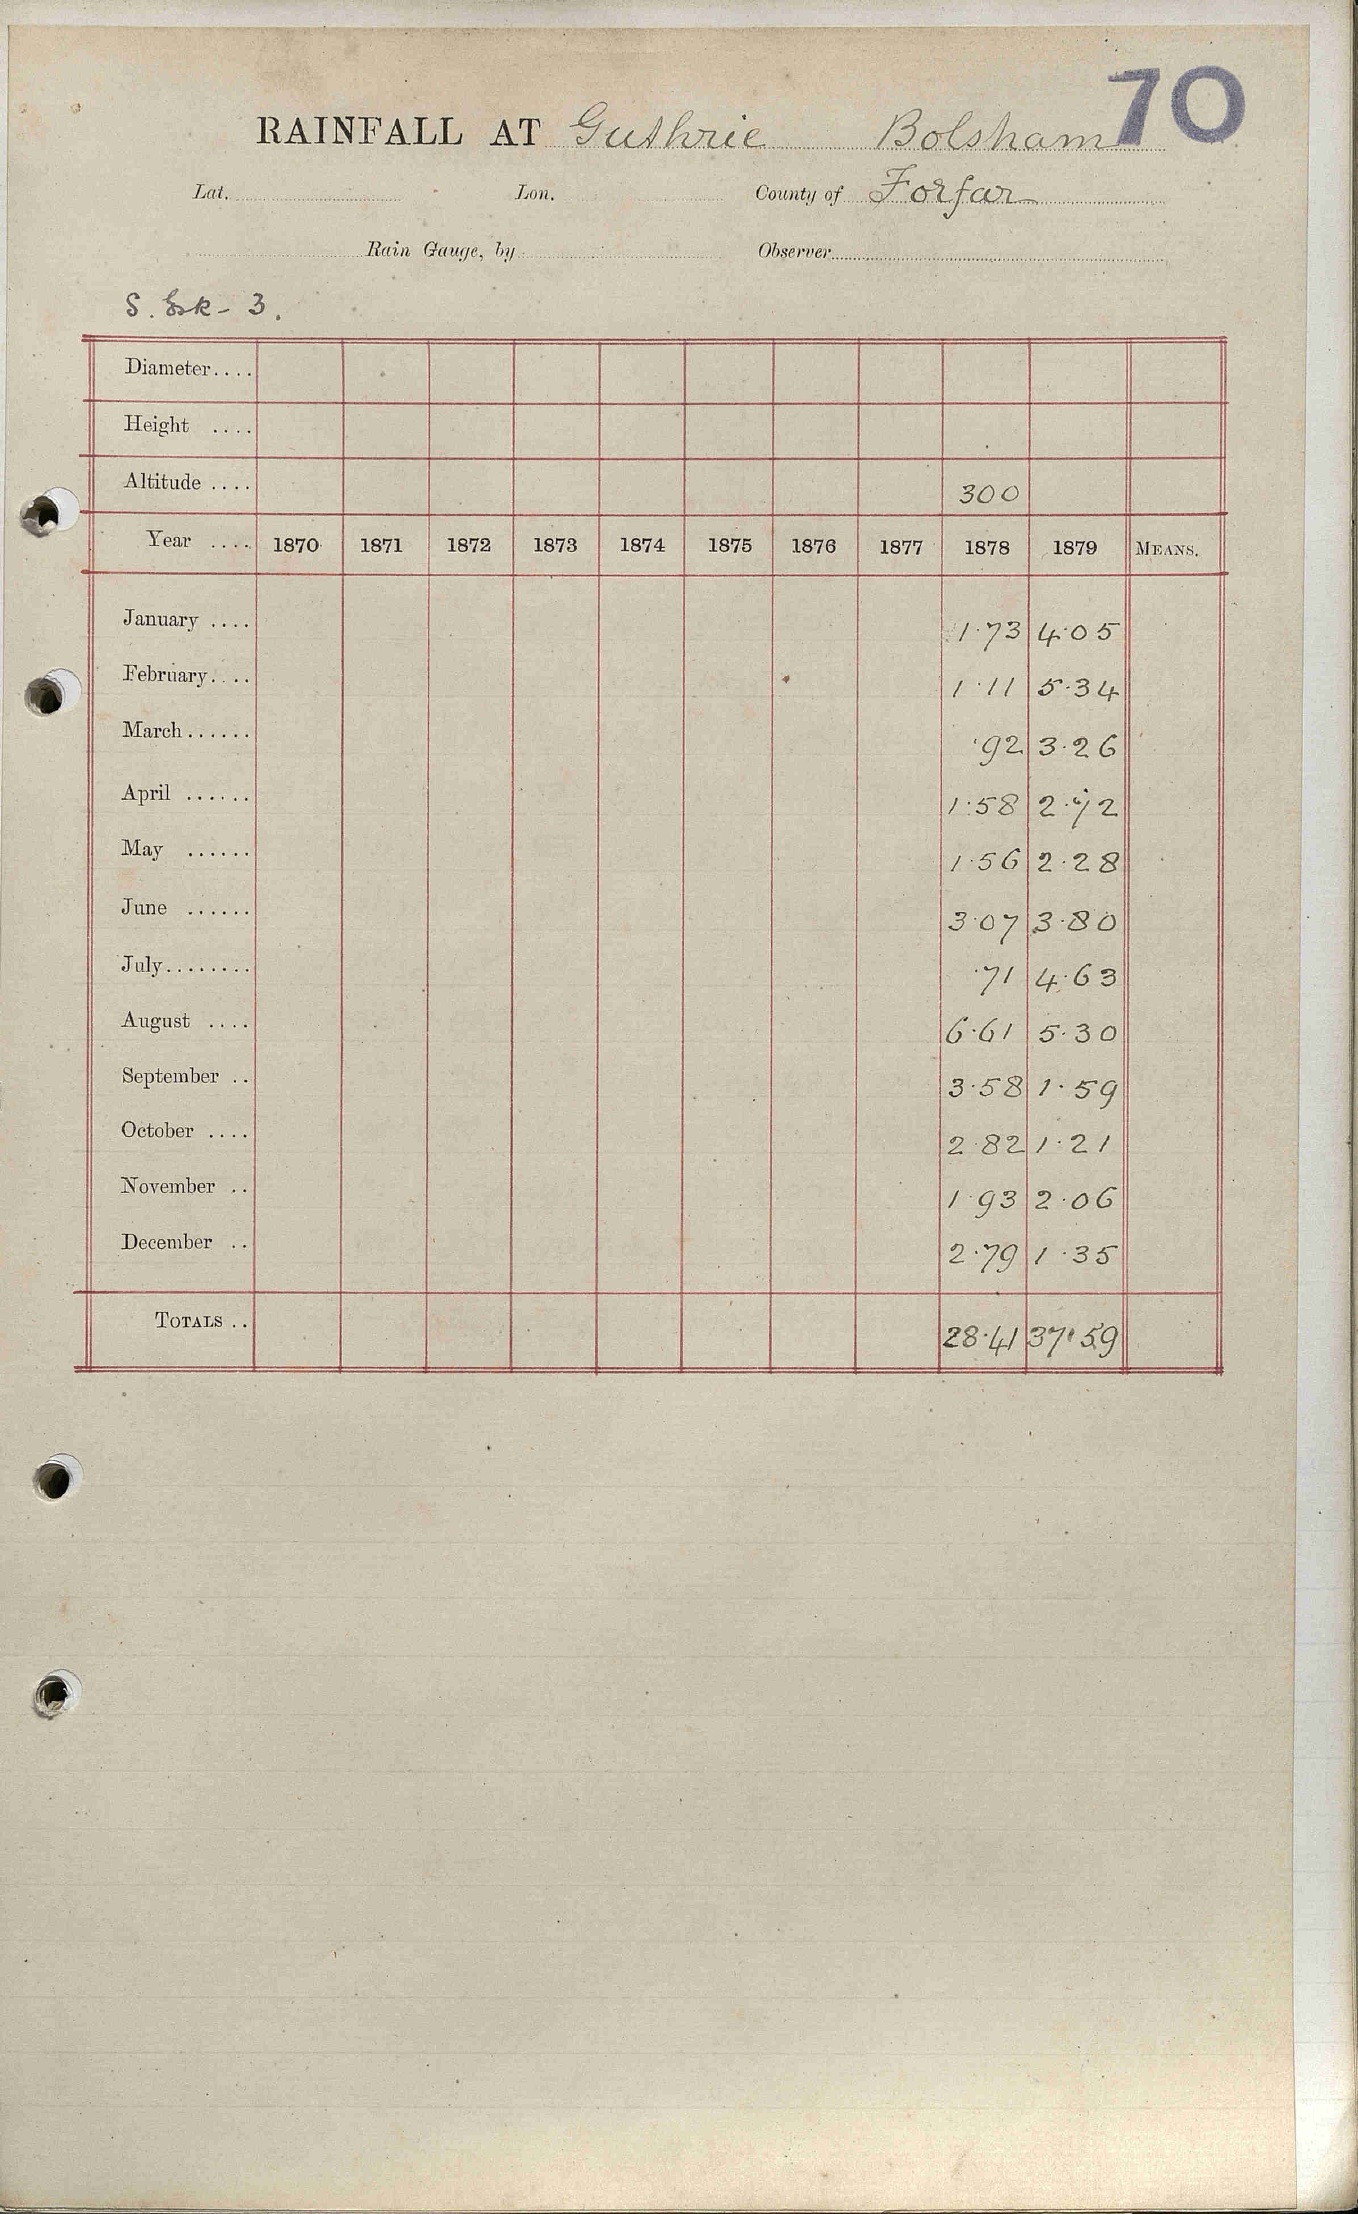 70
RAINFALL AT Guthrie Bolsham
Lat. Lon. County of Forfar
Rain Gauge, by Observer
S. Esk - 3.
Diameter....
Height ....
Altitude .... 300
Year .... 1870 1871 1872 1873 1874 1875 1876 1877 1878 1879 MEANS.
January .... 1.73 4.05
February.... 1.11 5.34
March...... .92 3.26
April ...... 1.58 2.72
May ...... 1.56 2.28
June ...... 3.07 3.80
July........ .71 4.63
August .... 6.61 5.30
September .. 3.58 1.59
October .... 2.82 1.21
November .. 1.93 2.06
December .. 2.79 1.35
TOTALS .. 28.41 37.59